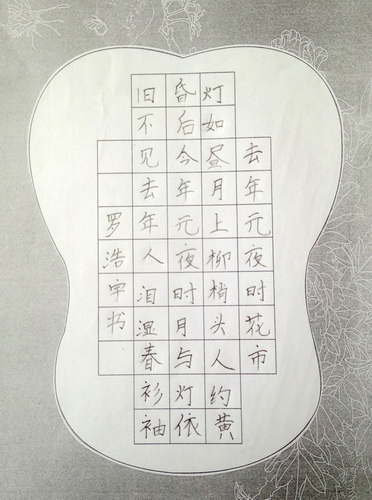 去年元夜时花市
灯如昼月上柳梢头人约黄
昏后今年元夜时月与灯依
旧不见去年人泪湿春衫袖
罗浩宇书